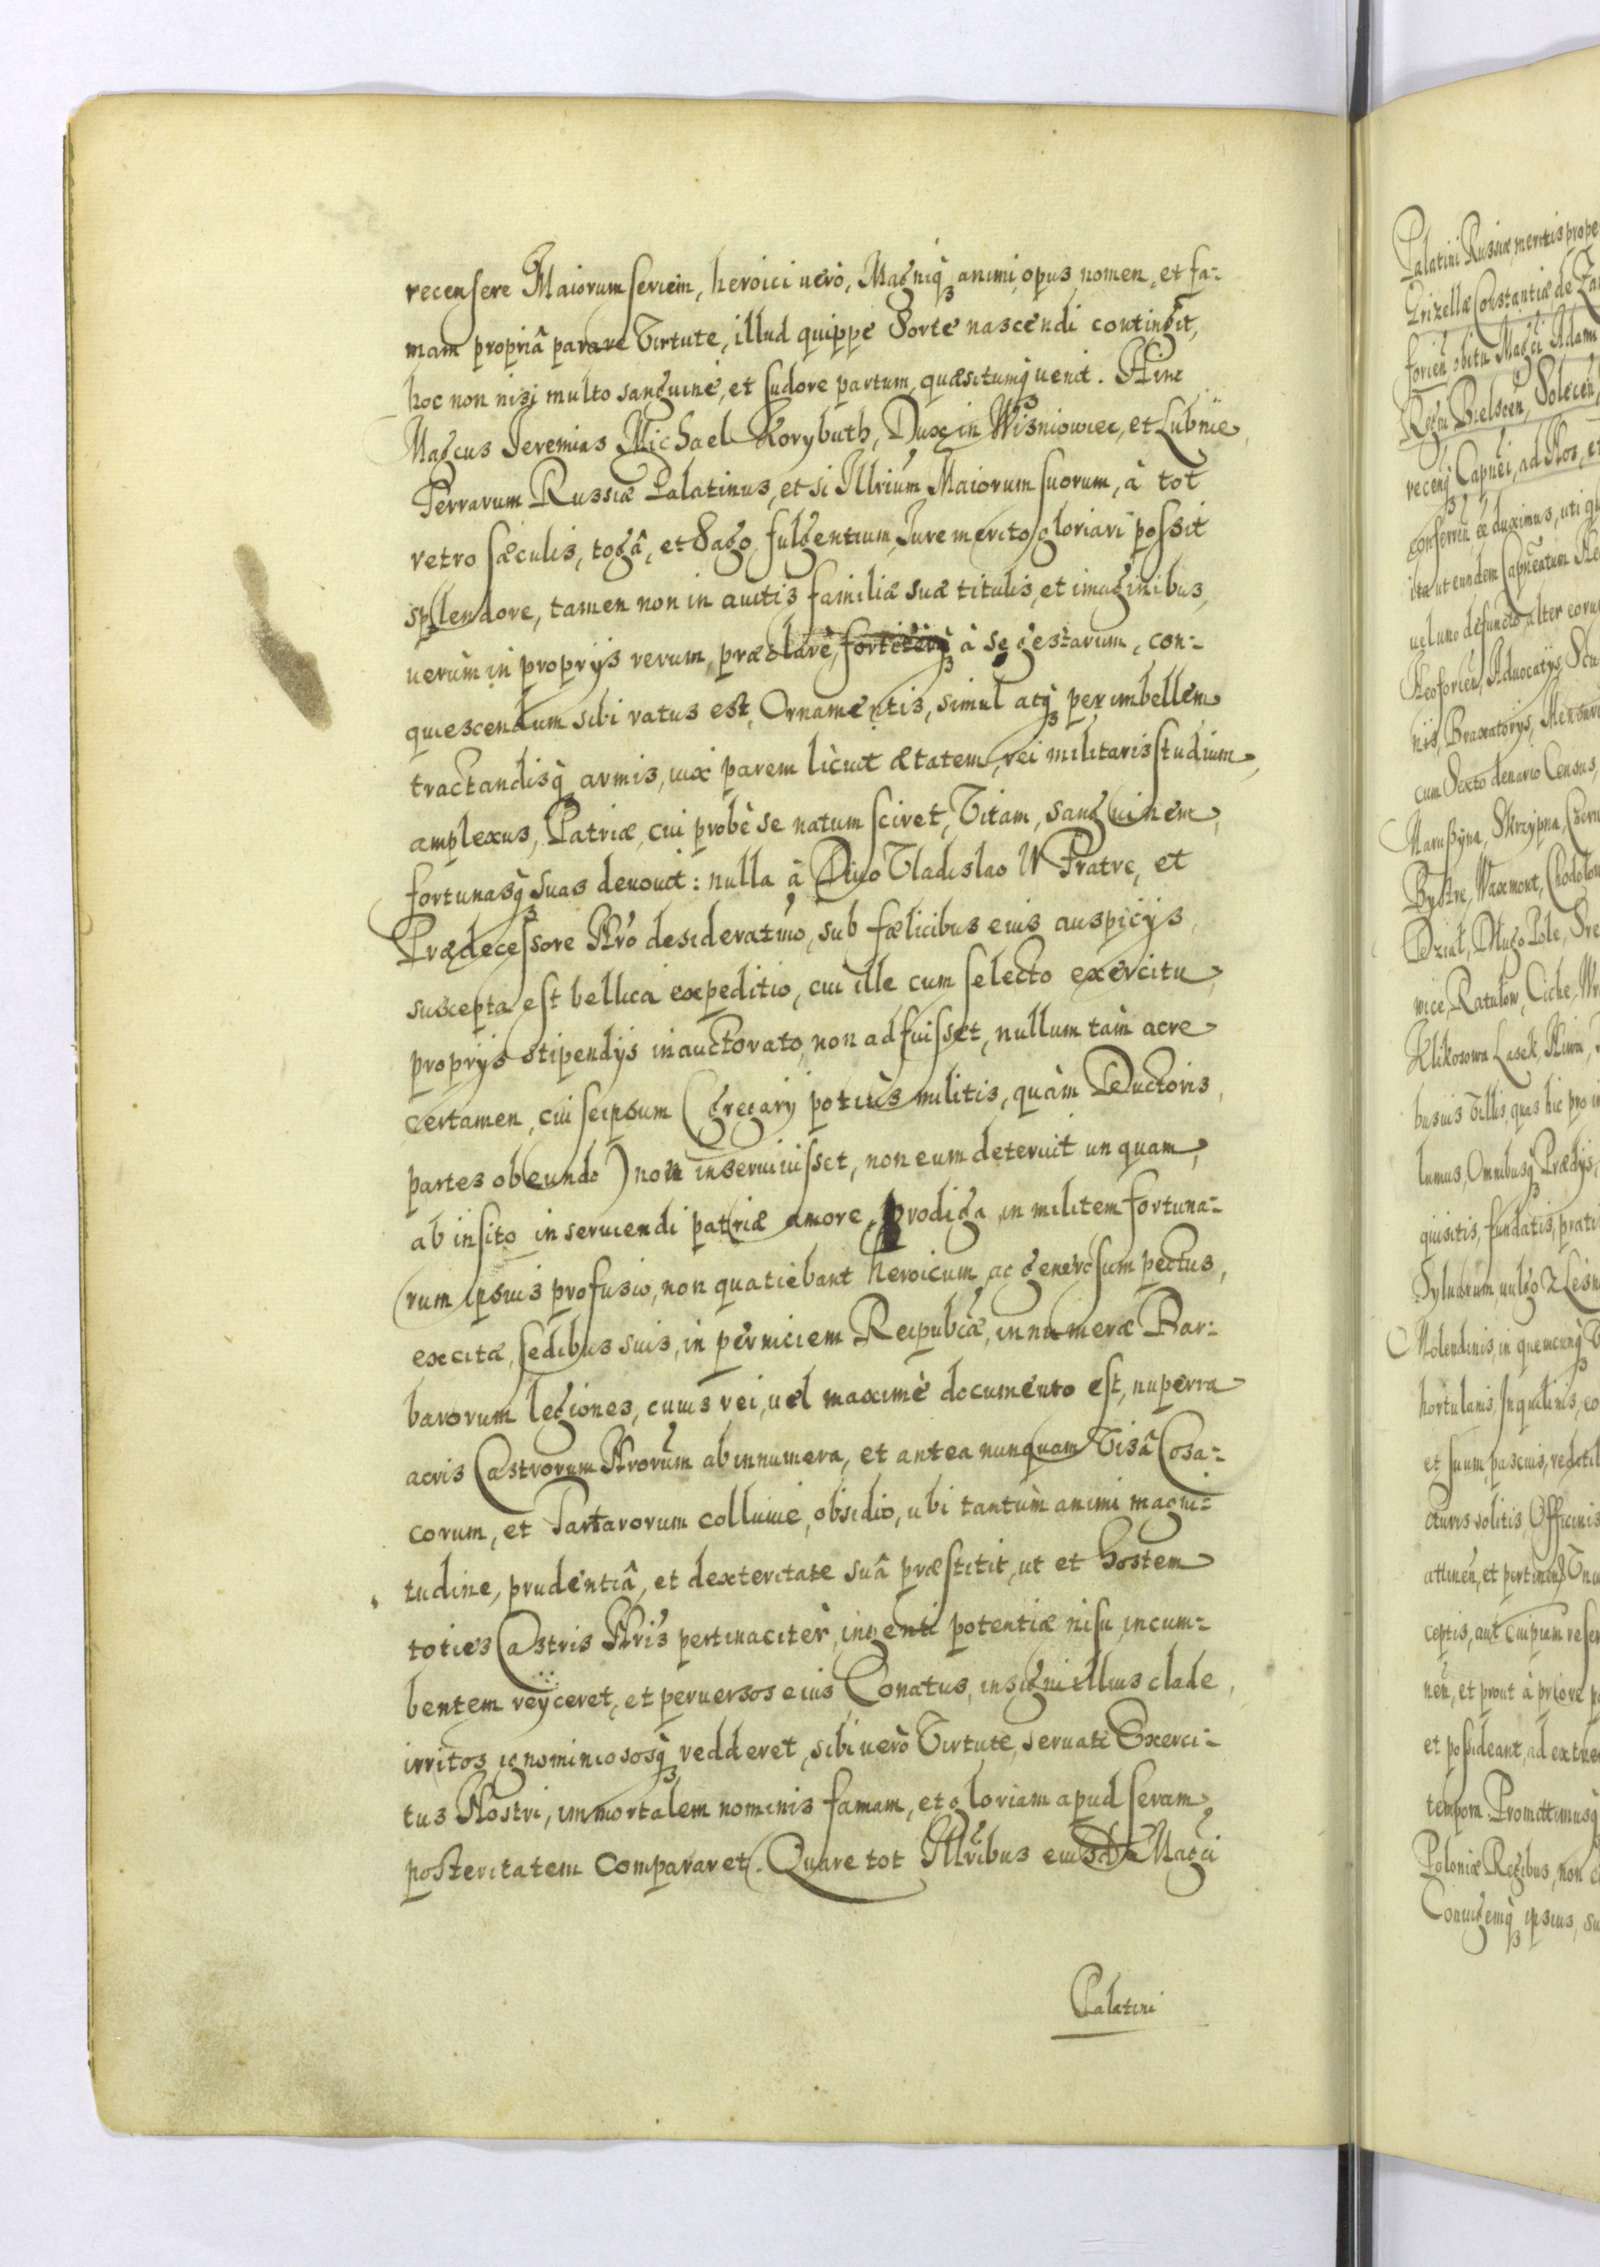 recensere Maiorum seriem, heroici uerò, Magniq3 animi, opus, nomen, et fa-
mam propriâ parare Virtute, illud quippe Sorte nascendi contingit,
hoc non nisi multo sanguine, et sudore partum, quæsitumq3 uenit. Hinc
Magcus Jeremias Michael Korybuth, Dux in Wisniowiec, et Lubnie,
Terrarum Russiæ Palatinus, et si Illrium Maiorum suorum, à tot
retro sæculis, togâ, et Sago fulgentium, Jure merito gloriari possit
splendore, tamen non in auitis familiæ suæ titulis, et imaginibus,
uerùm in proprys rerum, præclarè, fortiterq3 à se gestarum, con-
quiescendum sibi ratus est, Ornamentis, simul atq3 per imbellem
tractandisq3 armis, uix parem licuit ætatem, rei militaris studium,
amplexus, Patriæ, cui probè se natum sciret, Vitam, sanguinem,
fortunasq3 suas deuouit: nulla à Diuo Vladislao IV Fratre, et
Prædecessore Nro desideratmo, sub fælicibus eius auspicys,
suscepta est bellica expeditio, cui ille cum selecto exercitu,
proprys stipendys inauctorato, non adfuisset, nullum tàm acre
certamen, cui seipsum (gregary potiùs militis, quàm Ductoris,
partes obeundo) non inseruiuisset, non eum deteruit unquam,
ab insito inseruiendi patriæ amore, prodiga in militem fortuna-
rum ipsius profusio, non quatiebant heroicum, ac generosum pectus,
excitæ, sedibus suis, in perniciem Reipubcæ, innumeræ Bar-
barorum legiones, cuius rei, uel maximè documento est, nuperra
acris Castrorum Nrorum ab innumera, et antea nunquam Visâ Cosa-
corum, et Tartarorum colluuie, obsidio, ubi tantùm animi magni-
tudine, prudentiâ, et dexteritate suâ præstitit, ut et hostem
toties Castris Nris pertinaciter, ingenti potentiæ nisu, incum-
bentem reÿceret, et peruersos eius Conatus, insigni illius clade,
irritos, ignominiososq3 redderet, sibi uerò Virtute, seruati Exerci-
tus Nostri, immortalem nominis famam, et gloriam apud seram
posteritatem compararet. Quare tot Illribus eiusde Magci
Palatini
Palatini Russiæ meritis
Grizellæ Constantiæ de
obitu Magci Adami
Bielscen, Solecen,
Capnei, ad Nos, et
duximus, uti
ita ut eundem Capneatum
uel uno defuncto alter
Aduocatÿs,
Braxatorÿs,
cum Sexto denario Census,
Maruszyna, Skrzypna,
Bystre, Waxmont,
Dział, Długo Pole,
Ratulow, Ciche,
Klikosowa Lasek, Niwa,
Villis, quas hic pro
Omnibusq3 Prædijs,
quisitis, fundatis,
Syluarum, uulgo
Molendinis, in quemcunq3
hortulanis, Inquilinis,
et suum, pascuis,
solitis, Officinis
et
ceptis, aut cuipiam
et prout à priore
et possideant, ad
tempora. Promittimusq3
Poloniæ Regibus, non
Coniugemq3 ipsius,